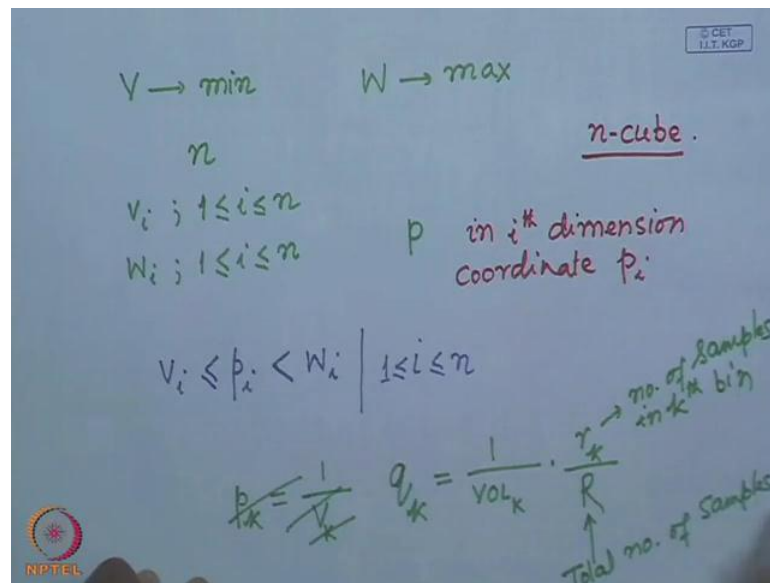 © CET
I.I.T. KGP
V → min W → max
n-cube.
n
v_i ; 1 ≤ i ≤ n
w_i ; 1 ≤ i ≤ n
p in i^th dimension
coordinate p_i
v_i ≤ p_i < w_i | 1 ≤ i ≤ n
p_k = 1/V_k q_k = 1/VOL_k · r_k/R
→ no. of samples
in k^th bin
Total no. of samples
NPTEL